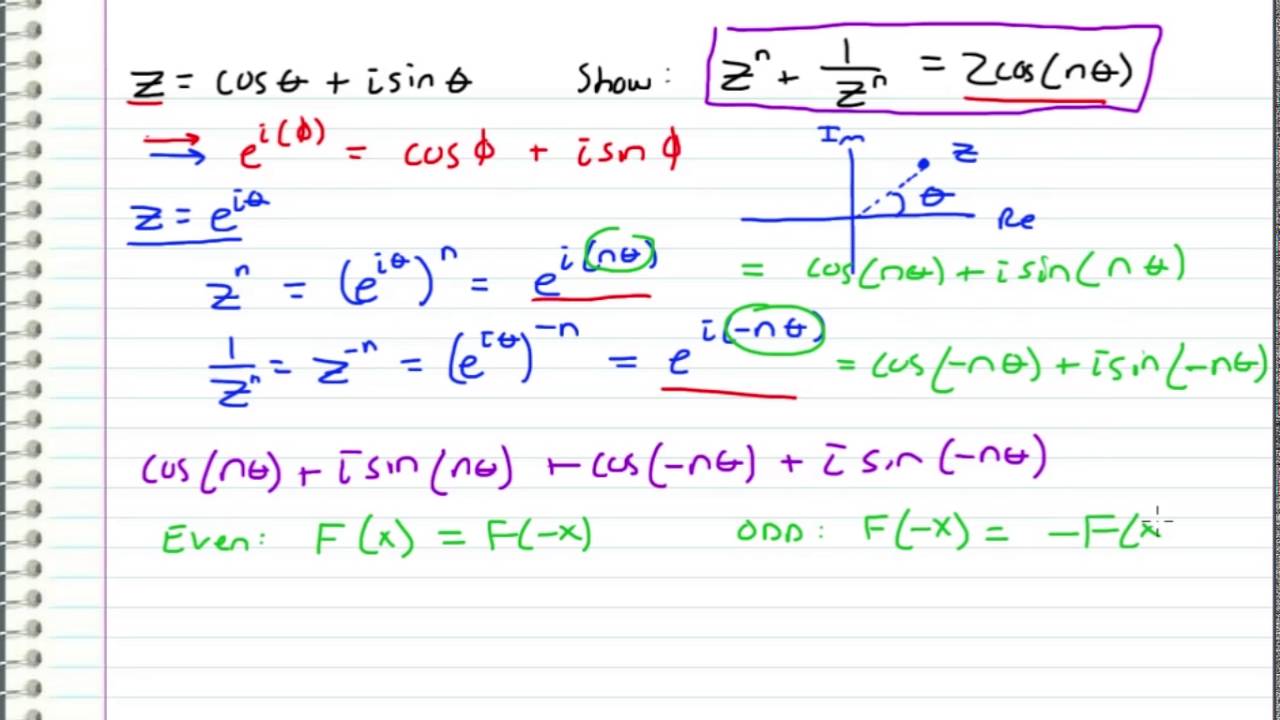 z = cosθ + i sinθ Show: zⁿ + 1/zⁿ = 2cos(nθ)
e^{i(ϕ)} = cosϕ + i sin ϕ
Im
z
z = e^{iθ} θ Re
zⁿ = (e^{iθ})ⁿ = e^{i(nθ)} = cos(nθ) + i sin(nθ)
1/zⁿ = z⁻ⁿ = (e^{iθ})⁻ⁿ = e^{i(-nθ)} = cos(-nθ) + i sin(-nθ)
cos(nθ) + i sin(nθ) + cos(-nθ) + i sin(-nθ)
Even: F(x) = F(-x) ODD: F(-x) = -F(x